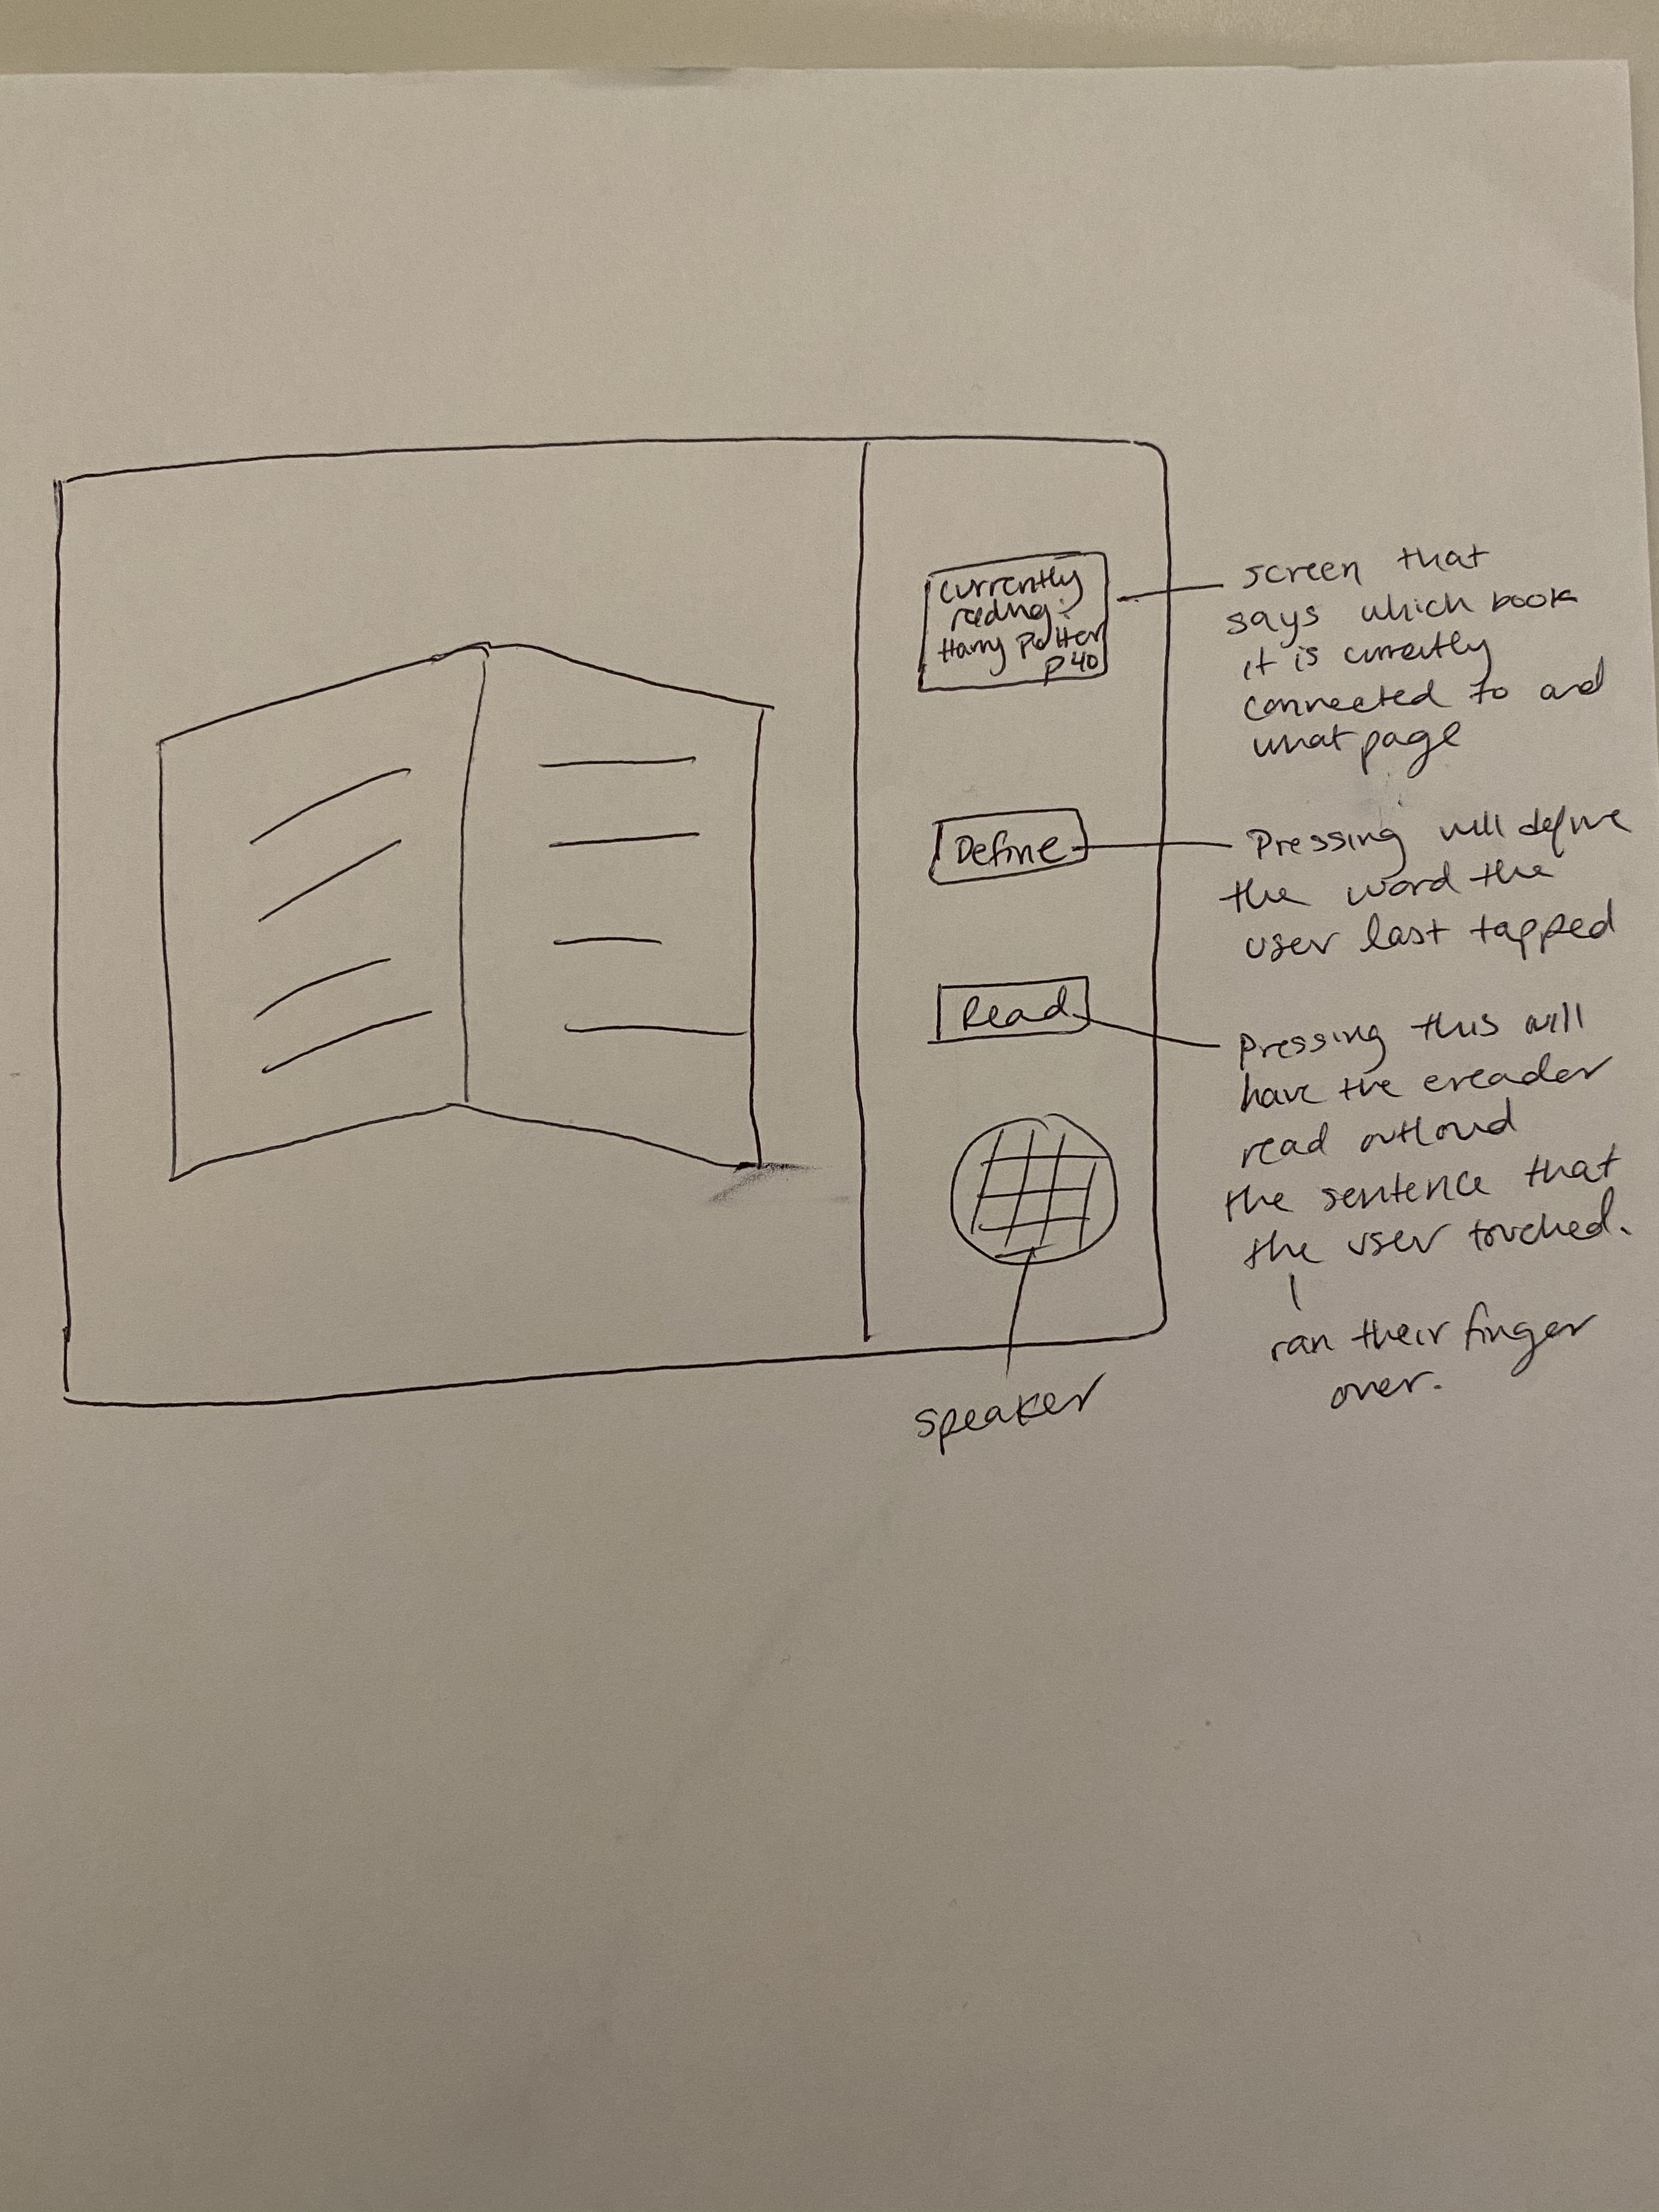 currently
reding:
Harry Potter
p 40
screen that
says which book
it is currently
connected to and
what page
Define
Pressing will define
the word the
user last tapped
Read
pressing this will
have the ereader
read outloud
the sentence that
the user touched.
ran their finger
over.
speaker